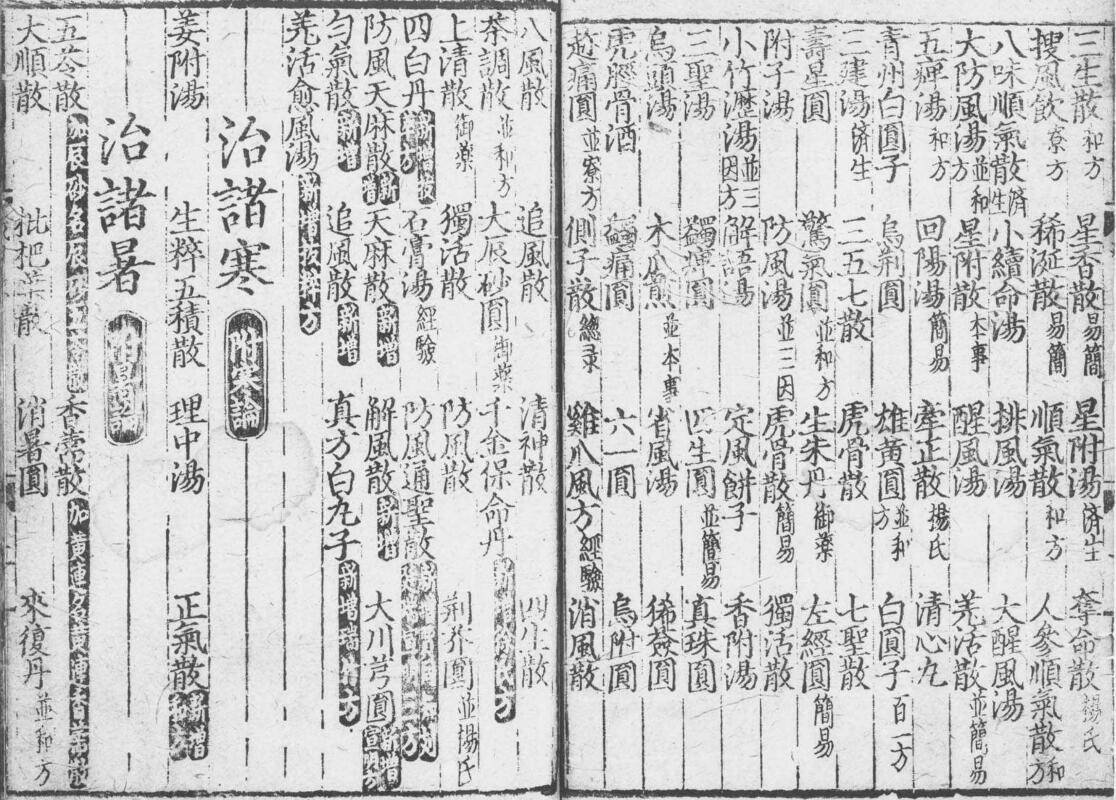 三生散和方 星香散易簡 星附湯済士 奪命散楊氏
搜風飲寮方 稀涎散易簡 順氣散和方 人參順氣散和方
八味順氣散済生 小續命湯 排風湯 大醒風湯
大防風湯並和方 星附散本事 醒風湯 羗活散並簡易
五痺湯和方 回陽湯簡易 牽正散楊氏 清心九
青州白圓子 烏荆圓 雄黄圓並和方 白圓子百一方
三建湯済生 三五七散 虎骨散 七聖散
壽星圓 驚氣圓並和方 生朱丹御藥 左經圓簡易
附子湯 防風湯並三因 虎骨散簡易 獨活散
小竹瀝湯並三因方 解語湯 定風餅子 香附湯
三聖湯 蠲痺圓 四生圓並簡易 真珠圓
烏頭湯 木瓜煎並本事 省風湯 狶薟圓
虎脛骨酒 蠲痛圓 六一圓 烏附圓
趂痛圓並寮方 側子散總录 雞八風方經驗 消風散
八風散 追風散 清神散 四生散
茶調散並和方 大辰砂圓御藥 千金保命丹
上清散御藥 獨活散 防風散 荆芥圓並楊氏
四白丹 石膏湯經驗 防風通聖散
防風天麻散新增 天麻散新增 解風散新增 大川芎圓新增宣明方
勻氣散新增 追風散新增 真方白九子
羗活愈風湯新增拔粹方
治諸寒 附寒論
姜附湯 生粹五積散 理中湯 正氣散
治諸暑 附暑論
五苓散 香薷散加黄連名黄連香薷散
大順散 枇杷葉散 消暑圓 來復丹並和方